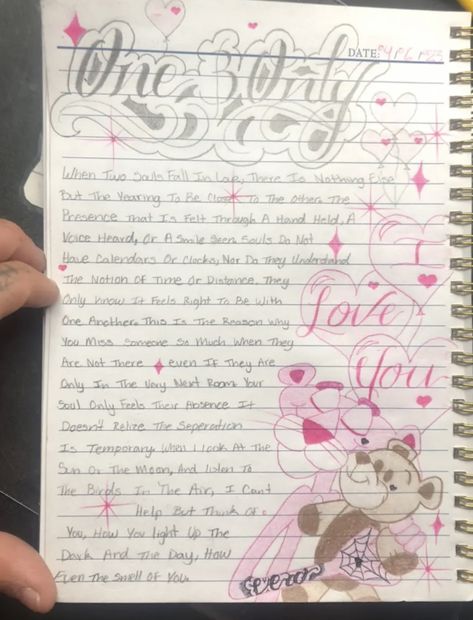 DATE:
One & Only
When Two Souls Fall In Love, There Is Nothing Else
But The Yearing To Be Close To The Other. The
Presence That Is Felt Through A Hand Held, A
Voice Heard, Or A Smile Seen. Souls Do Not
Have Calendars Or Clocks, Nor Do They Understand
The Notion Of Time Or Distance. They
Only Know It Feels Right To Be With
One Another. This Is The Reason Why
You Miss Someone So Much When They
Are Not There even If They Are
Only In The Very Next Room. Your
Soul Only Feels Their Absence It
Doesn't Relize The Seperation
Is Temporary. When I look At The
Sun Or The Moon, And listen To
The Birds In The Air, I Cant
Help But Think Of
You, How You light Up The
Dark And The Day, How
Even The Smell Of You.
I
Love
You